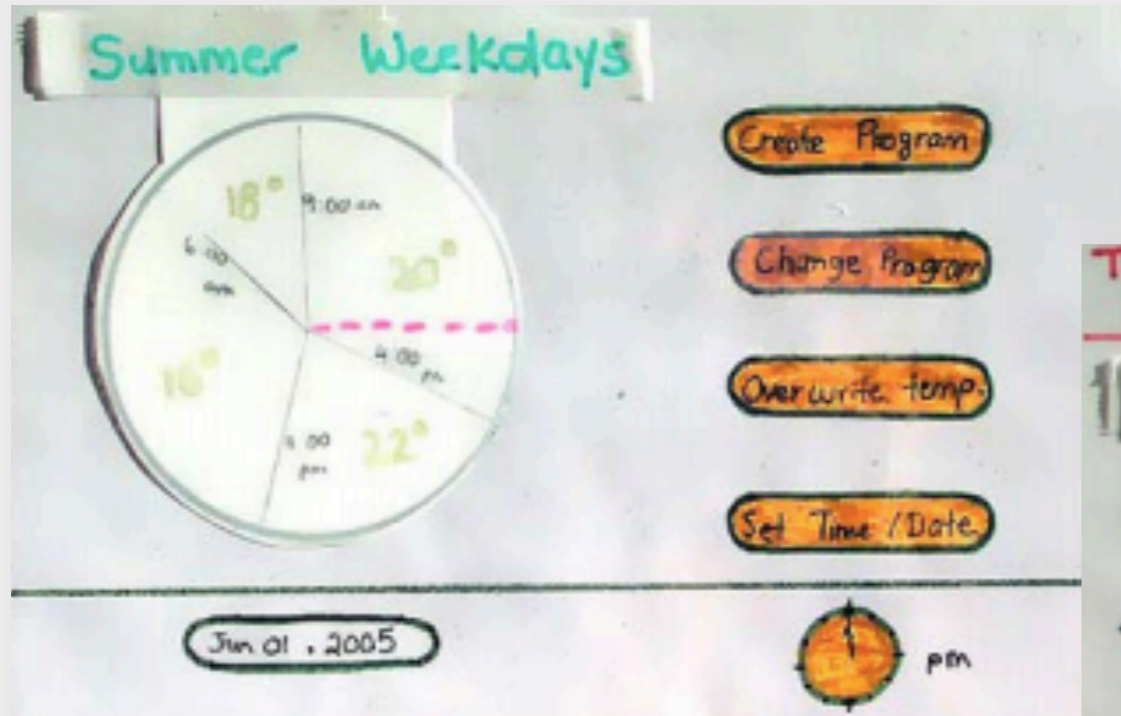 Summer Weekdays
18°
9:00 am
6:00
am
20°
4:00
pm
16°
22°
:00
pm
Create Program
Change Program
Overwrite temp.
Set Time / Date
Jun 01, 2005
pm
T